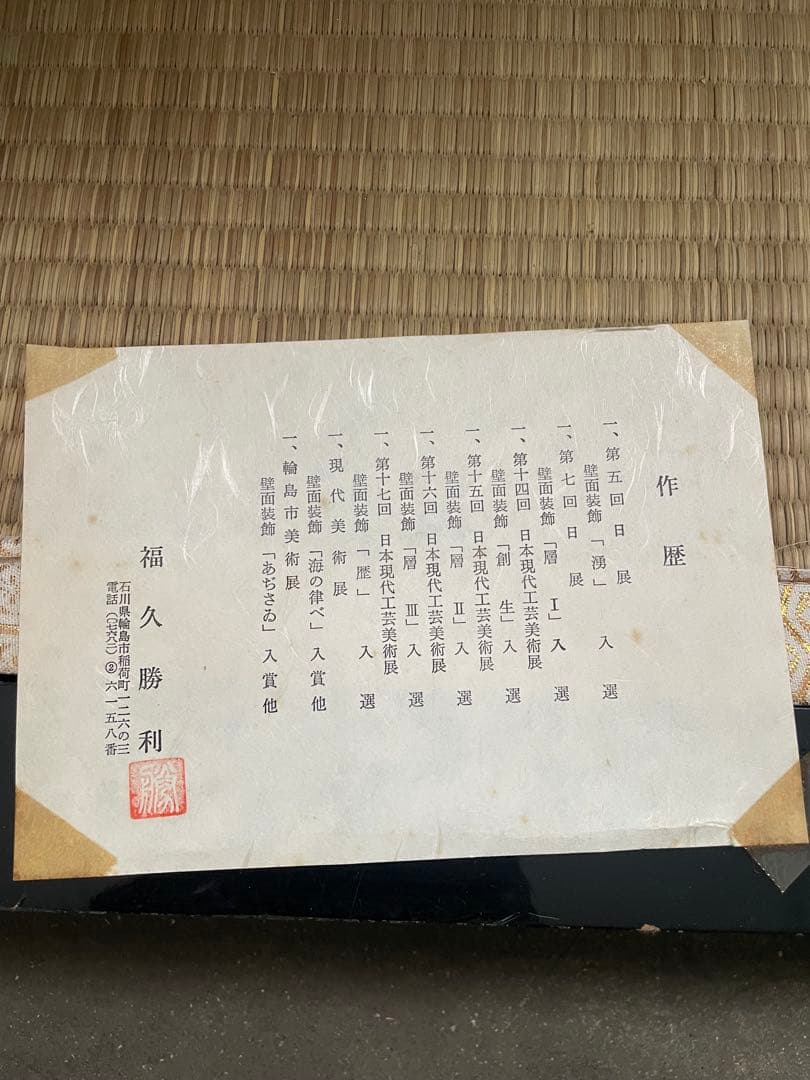 作歴
一、第五回日展
壁面装飾「湧」入選
一、第七回日展
壁面装飾「層Ⅰ」入選
一、第十四回 日本現代工芸美術展
壁面装飾「創生」入選
一、第十五回 日本現代工芸美術展
壁面装飾「層Ⅱ」入選
一、第十六回 日本現代工芸美術展
壁面装飾「層Ⅲ」入選
一、第十七回 日本現代工芸美術展
壁面装飾「歴」入選
一、現代美術展
壁面装飾「海の律べ」入賞他
一、輪島市美術展
壁面装飾「あぢさゐ」入賞他
福久勝利
石川県輪島市稲荷町一二六の三
電話(〇七六八二)②六一五八番